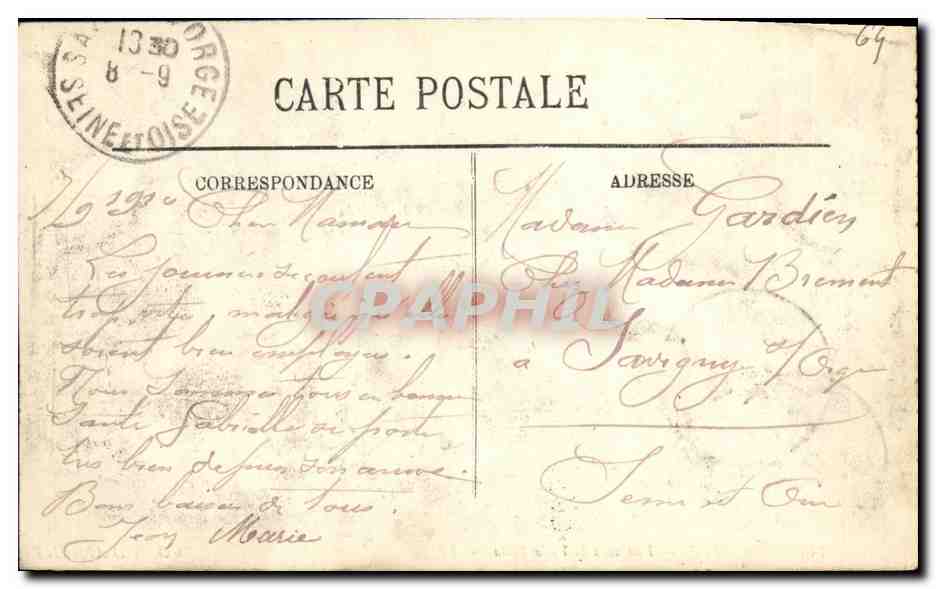 SA ORGE
13 30
8 -9
SEINE ET OISE
64
CARTE POSTALE
CORRESPONDANCE
ADRESSE
7/9 1910
Cher Maman
Les journées s'écoulent
trop vite, malgré qu'elles
soient bien employées.
Nous sommes tous en bonne
santé Gabrielle se porte
très bien depuis son arrivé.
Bons baisers de tous.
Jean Marie
Madame Gardien
Chez Madame Brément
à Savigny s/Orge
Seine et Oise
CPAPHIL